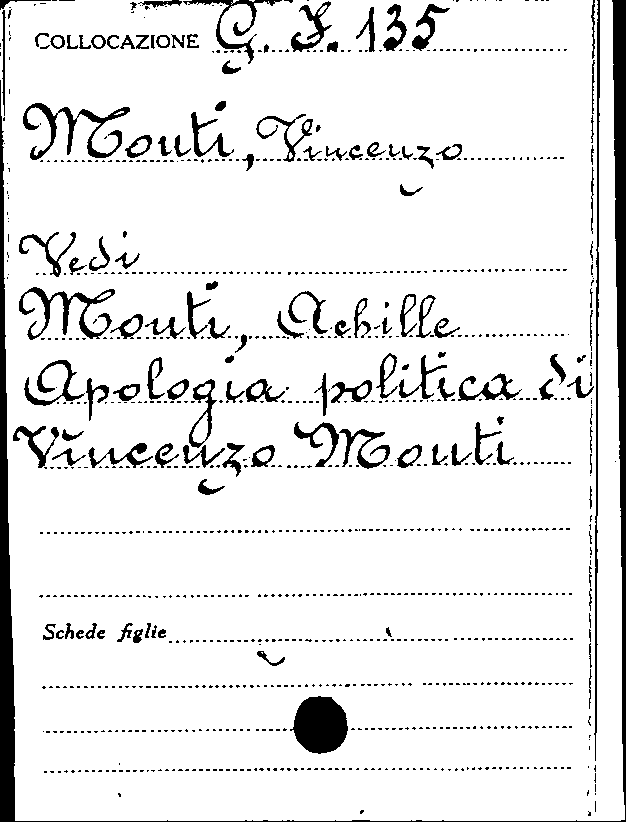 COLLOCAZIONE G. I. 135
Monti, Vincenzo
Vedi
Monti, Achille
Apologia politica di
Vincenzo Monti
Schede figlie